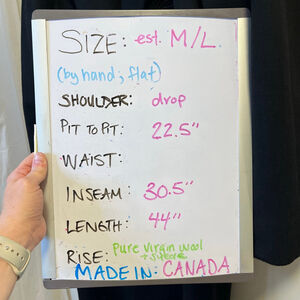 SIZE: est. M/L.
(by hand; flat)
SHOULDER: drop
PIT TO PIT: 22.5"
WAIST:
INSEAM: 30.5"
LENGTH: 44"
RISE: pure virgin wool
MADE IN: CANADA